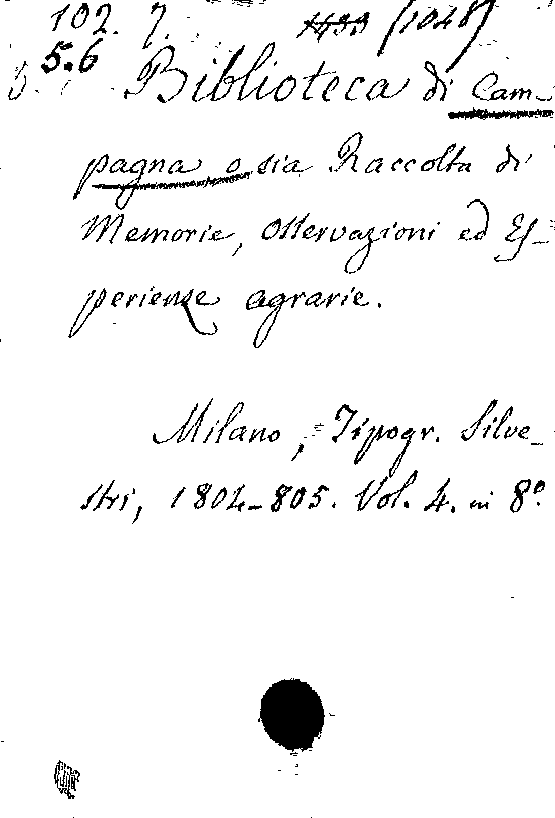 102. 7. (1048)
5.6
Biblioteca di Cam-
pagna o sia Raccolta di
Memorie, Osservazioni ed Es-
perienze agrarie.
Milano, Tipogr. Silve-
stri, 1804-805. Vol. 4. in 8º.